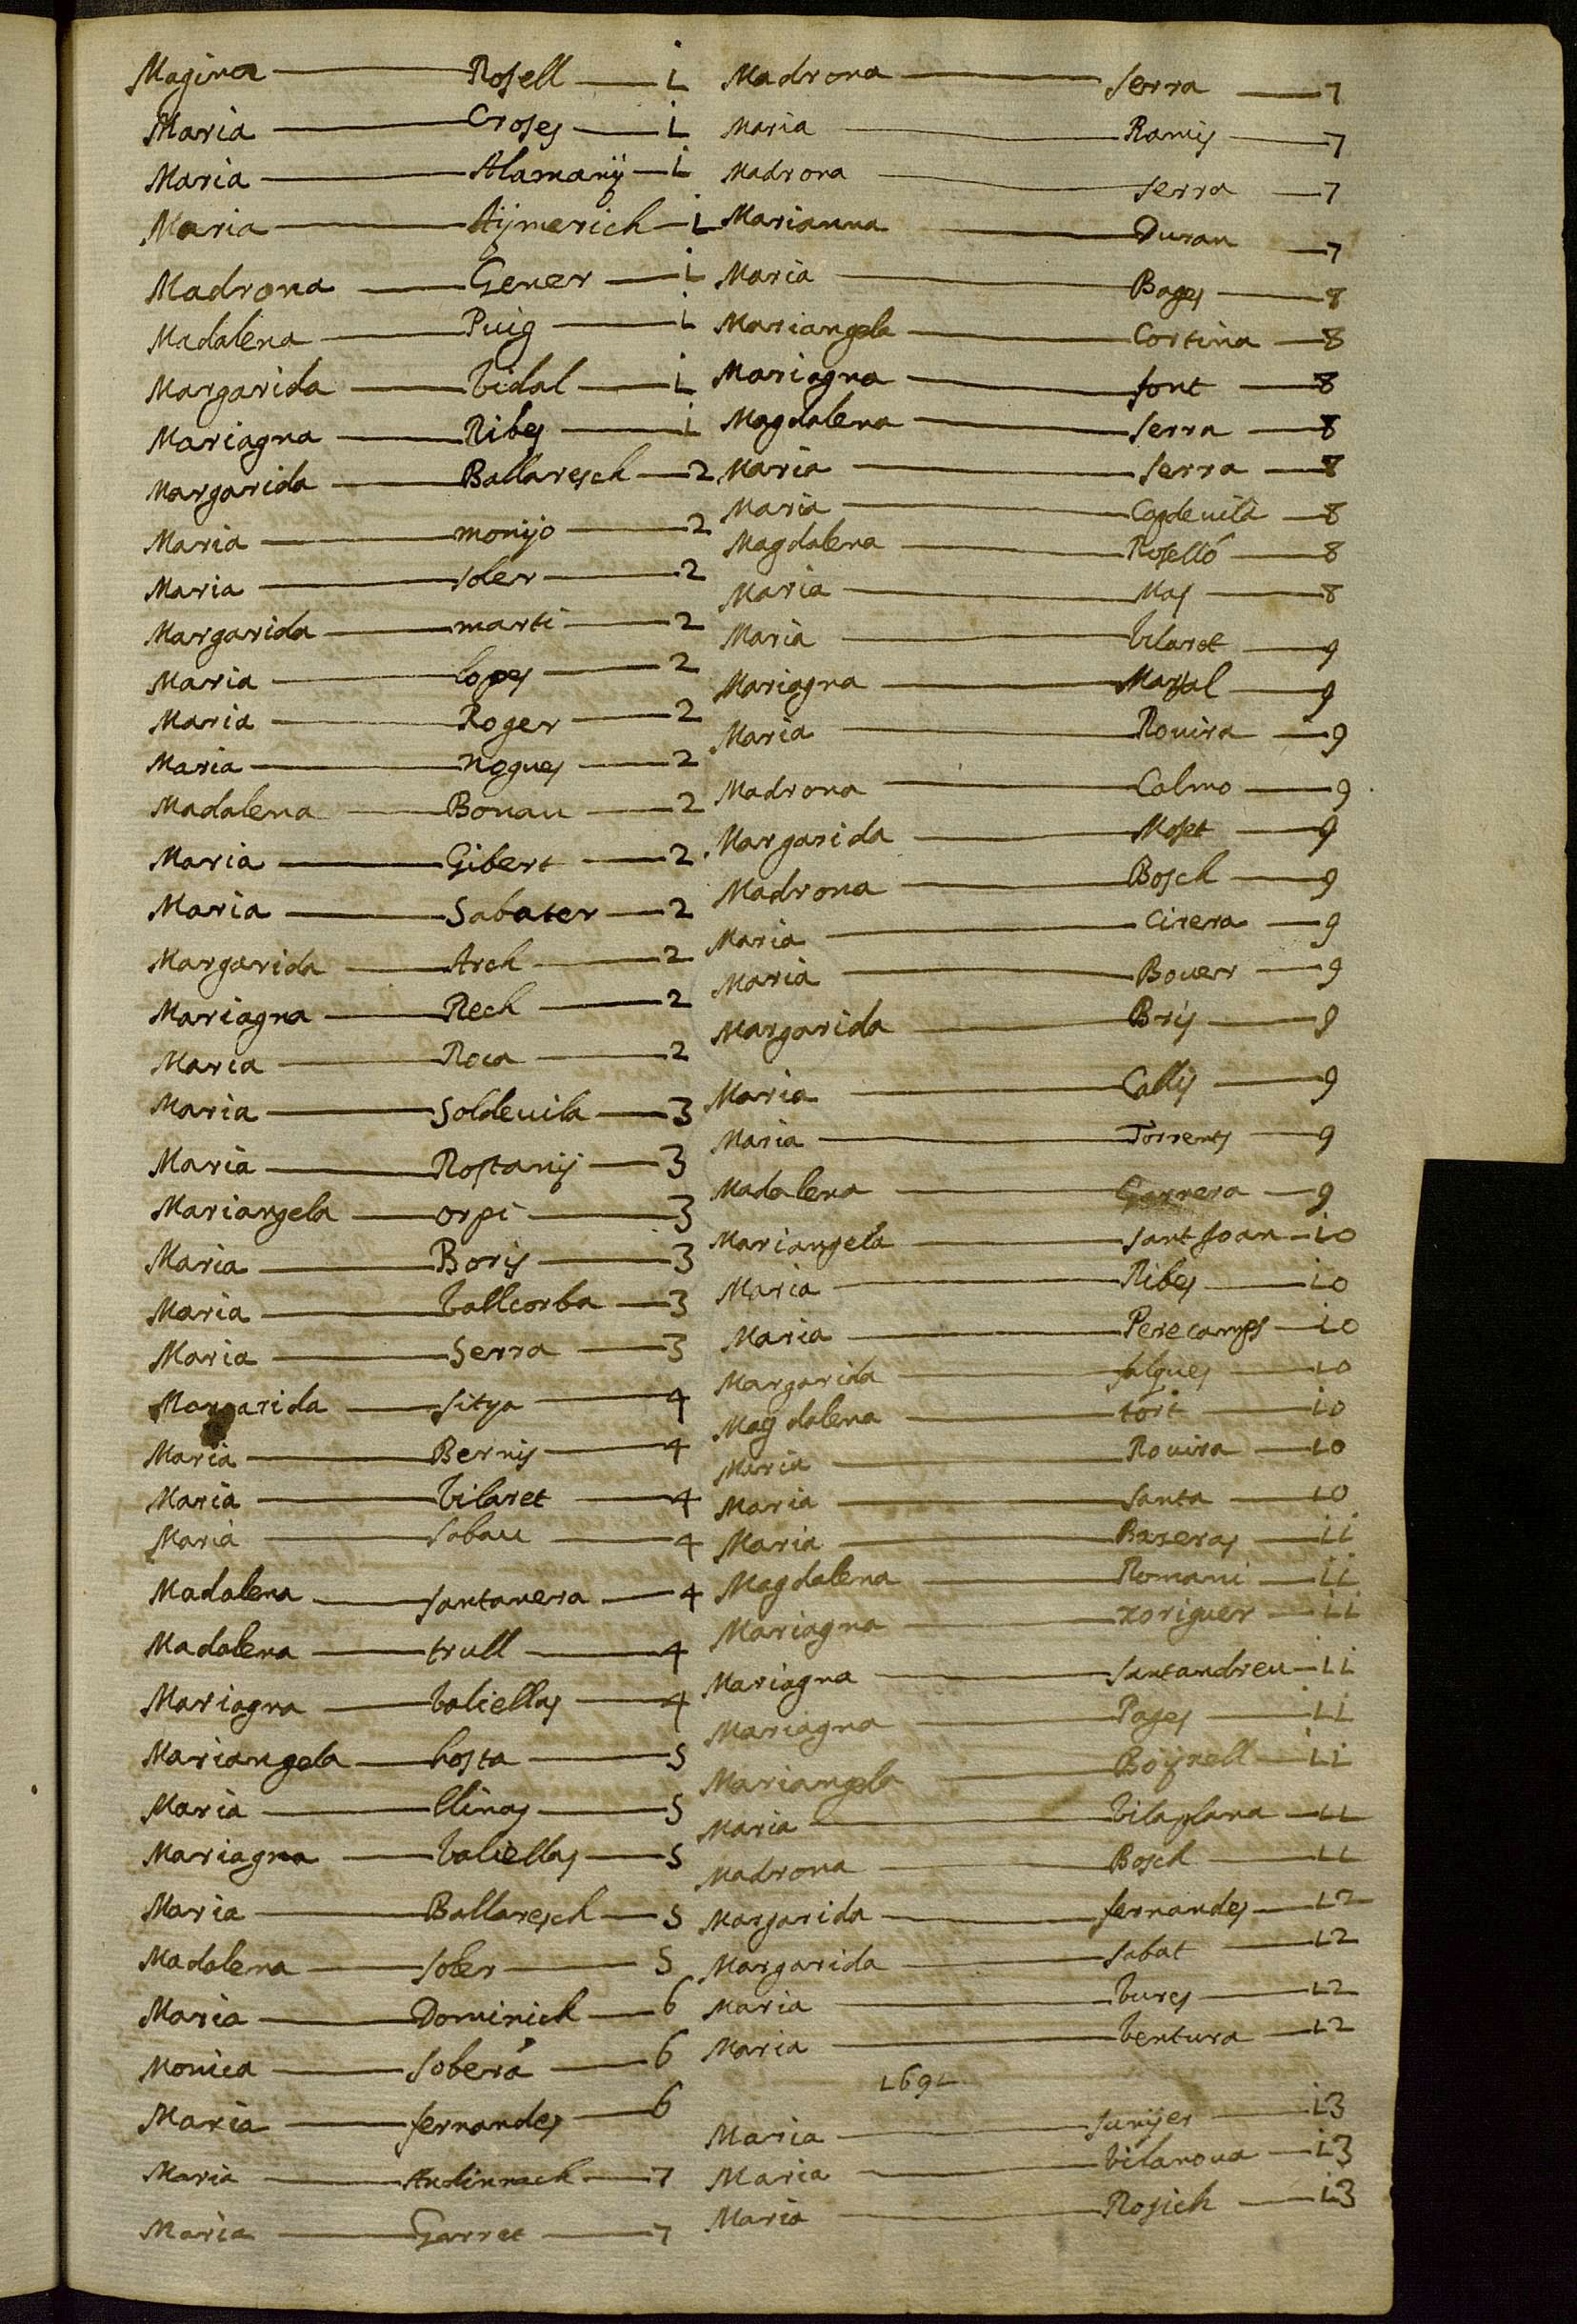 Magina Rosell 1
Maria Croses 1
Maria Alamany 1
Maria Aymerich 1
Madrona Gener 1
Madalena Puig 1
Margarida Vidal 1
Mariagna Ribes 1
Margarida Ballaresch 2
Maria monijo 2
Maria soler 2
Margarida marti 2
Maria lopes 2
Maria Roger 2
Maria nogues 2
Madalena Bonau 2
Maria Gibert 2
Maria Sabater 2
Margarida Arch 2
Mariagna Rech 2
Maria Roca 2
Maria Soldevila 3
Maria Rostanÿ 3
Mariangela orpi 3
Maria Boris 3
Maria Vallcorba 3
Maria Serra 3
Margarida sitga 4
Maria Bernis 4
Maria Vilaret 4
Maria sabau 4
Madalena santanera 4
Madalena trull 4
Mariagna Valiellas 4
Mariangela hosta 5
Maria llinas 5
Mariagna Valiellas 5
Maria Ballaresch 5
Madalena soler 5
Maria Dominich 6
Monica soberà 6
Maria fernandes 6
Maria 7
Maria Garret 7
Madrona serra 7
Maria Ramis 7
Madrona serra 7
Marianna Duran 7
Maria Bages 8
Mariangela Cortina 8
Mariagna font 8
Magdalena serra 8
Maria serra 8
Maria Capdevila 8
Magdalena Roselló 8
Maria Mas 8
Maria Vilaret 9
Mariagna Marsal 9
Maria Rovira 9
Madrona Calmo 9
Margarida Moset 9
Madrona Bosch 9
Maria Cirera 9
Maria Bover 9
Margarida Bris 9
Maria Callis 9
Maria Torrents 9
Madalena Garrera 9
Mariangela sant Joan 10
Maria Ribes 10
Maria Perecamps 10
Margarida salques 10
Magdalena tort 10
Maria Rovira 10
Maria santa 10
Maria Baxeras 11
Magdalena Romani 11
Mariagna xoriguer 11
Mariagna santandreu 11
Mariagna Pages 11
Mariangela Boÿxell 11
Maria Vilaplana 11
Madrona Bosch 11
Margarida fernandes 12
Margarida sabat 12
Maria Vures 12
Maria Ventura 12
1691
Maria sunÿer 13
Maria Vilanova 13
Maria Rosich 13